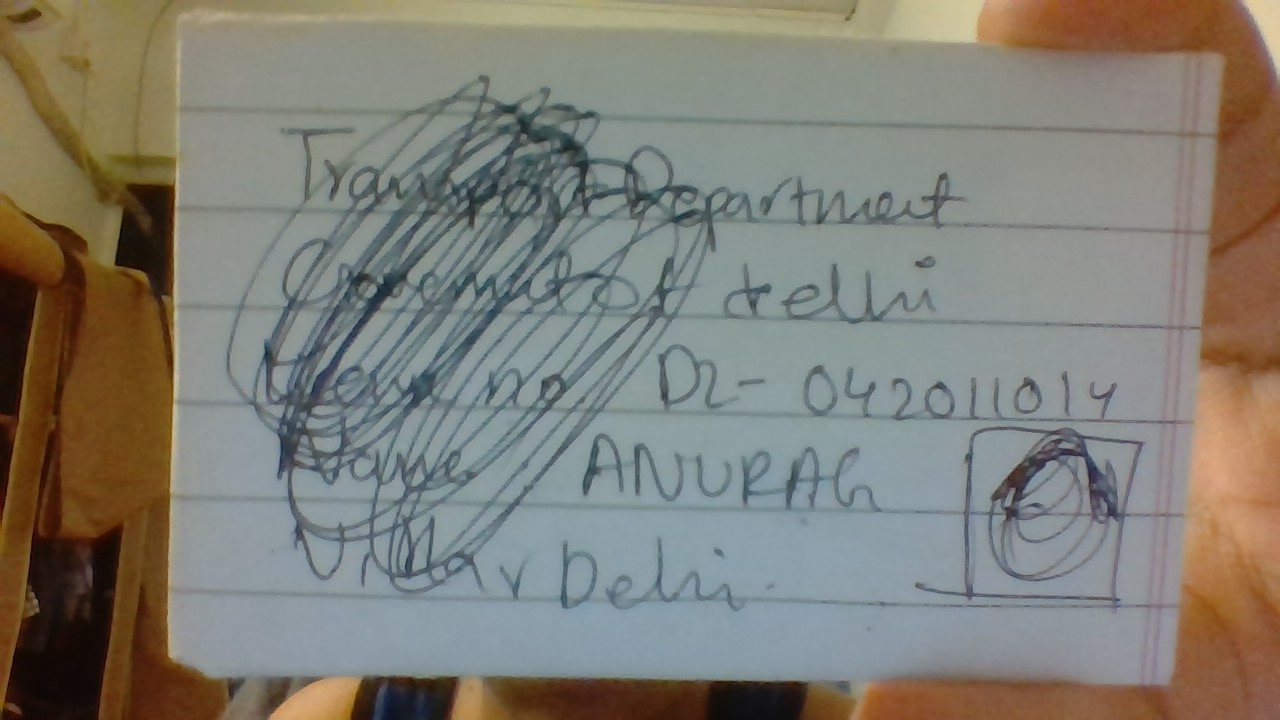 Transport Department
Govenmt of delhi
no DL-042011014
Name ANURAG
Delhi.